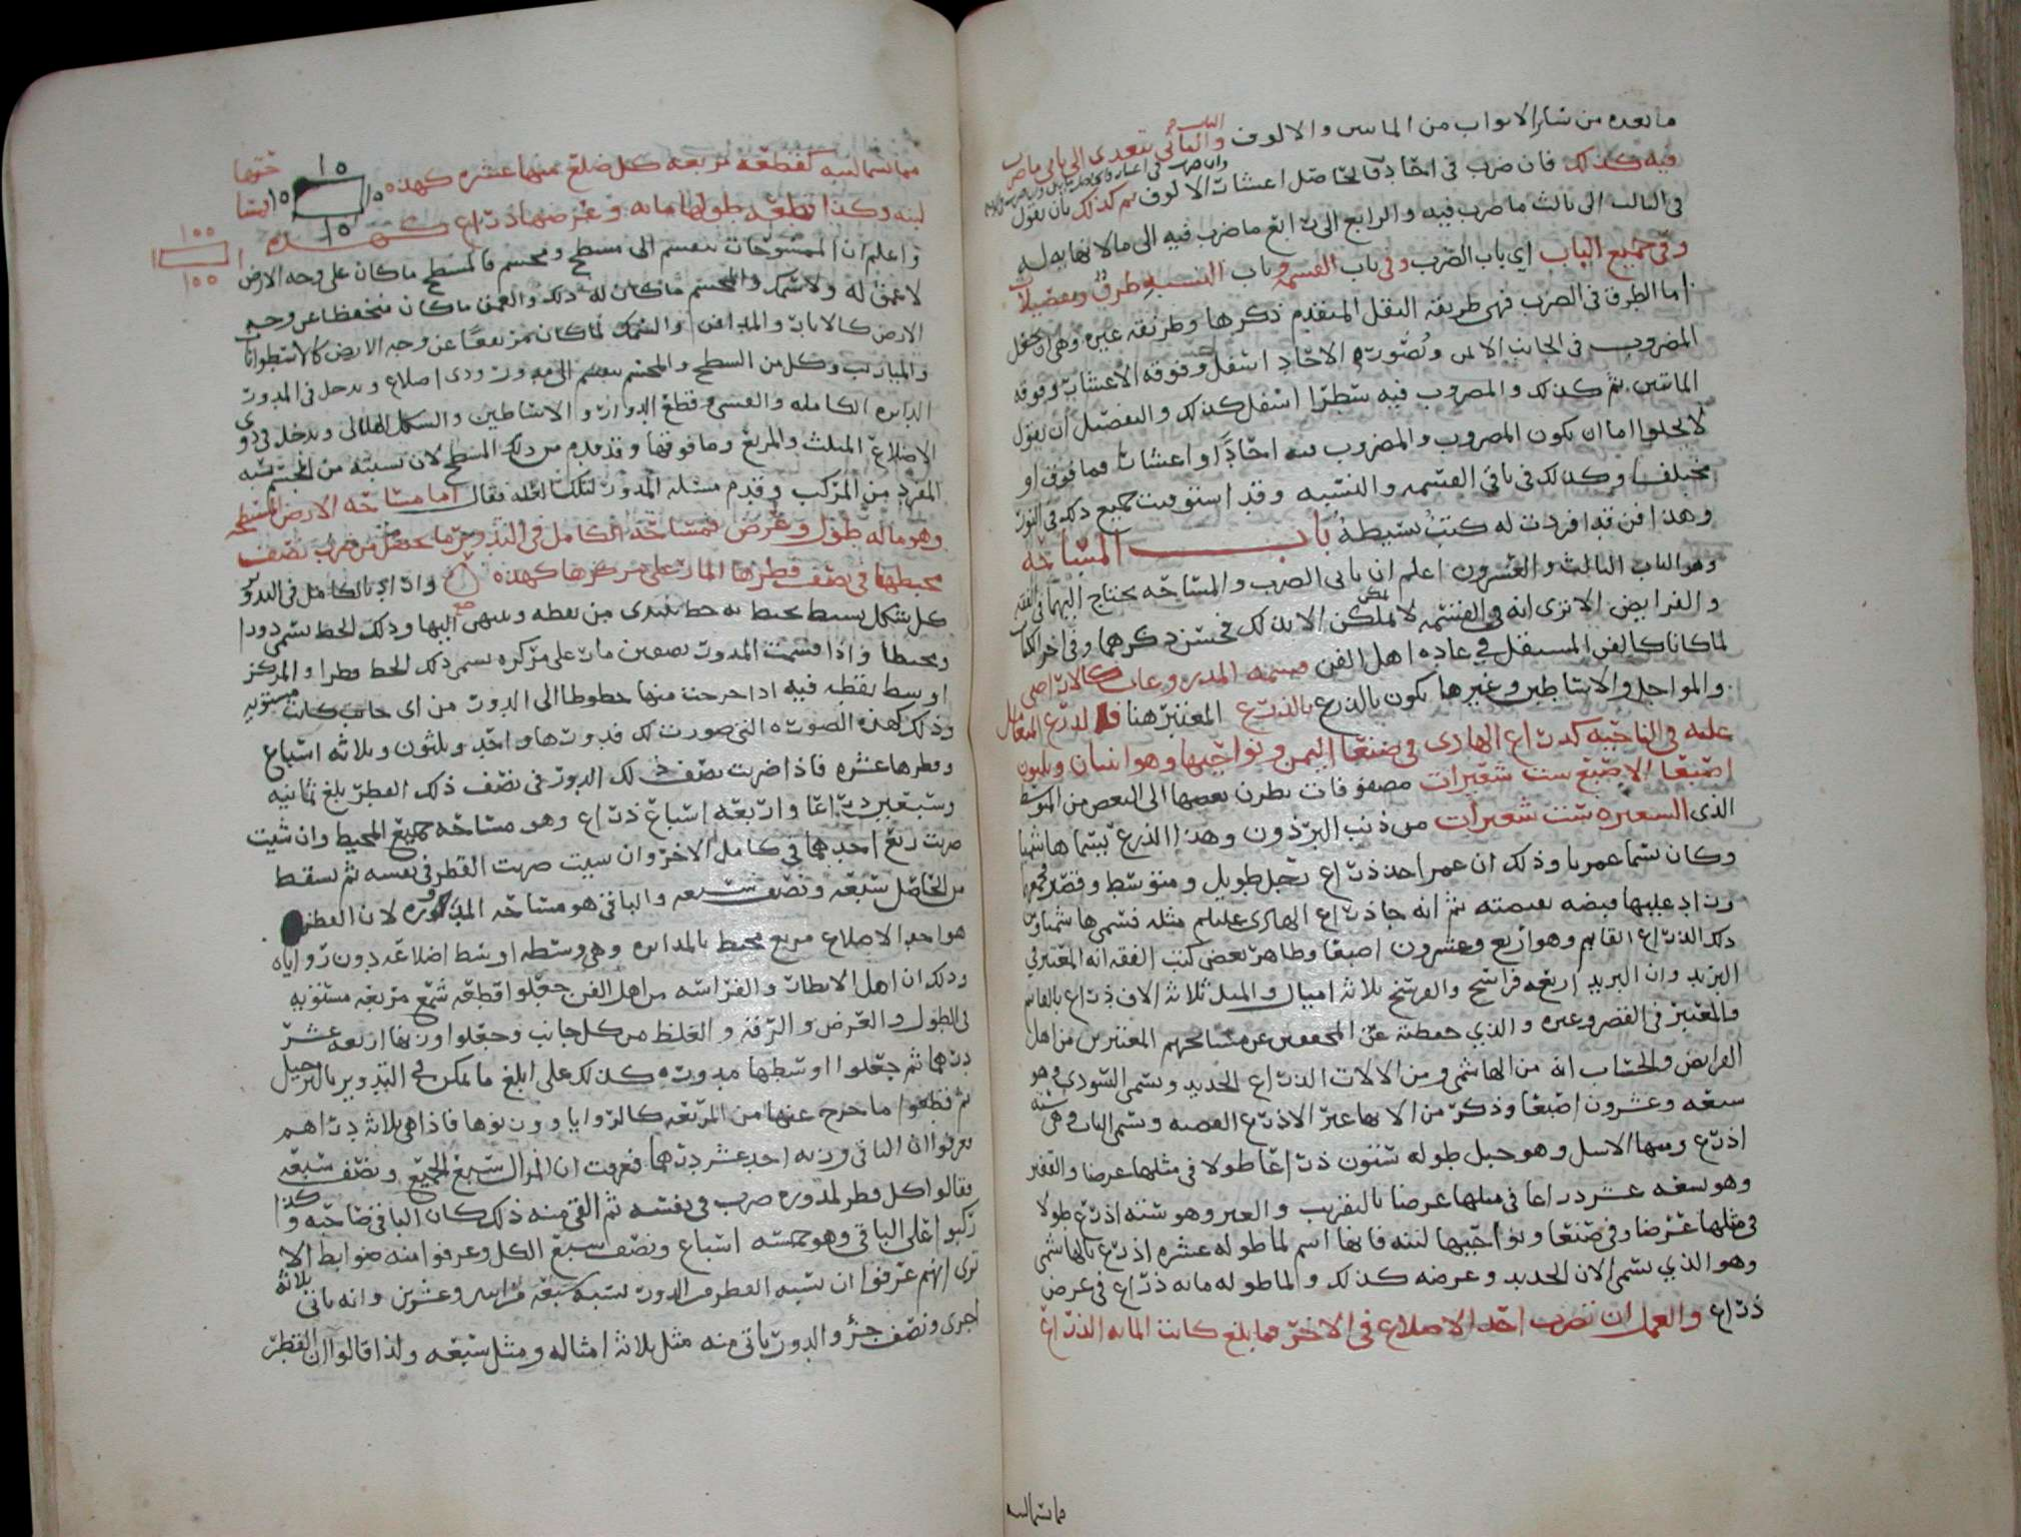 ما بعده من سائر الابواب من الماس والالوف والثانى يتعدى الى ثانى ما ضرب
فيه كذلك فان ضرب فى احاد فالحاصل اعشار الالوف ثم كذلك بان يقول
فى الثالث الى ثالث ما ضرب فيه والرابع الى رابع ما ضرب فيه الى مالا نهايه له
وفى جميع الباب اي باب الضرب وفى باب القسمه وباب النسبه طرق وتفصيلات
اما الطرق فى الضرب فهى طريقه النقل المتقدم ذكرها وطريقه غيره وهى ان تجعل
المضروب فى الجانب الايمن وتصوره الاحاد اسفل وفوقه الاعشار وفوقه
المائتين ثم كذلك والمضروب فيه سطرا اسفل كذلك والتفصيل ان يقول
لا يخلوا اما ان يكون المضروب والمضروب فيه احادا او اعشارا فما فوق او
مختلف وكذلك فى باقى القسمه والنسبه وقد استوفيت جميع ذلك فى النور
وهذا فن قد افردت له كتب بسيطة باب المساحه
وهو الباب الثالث والعشرون اعلم ان بابى الضرب والمساحه يحتاج اليهما فى الفقه
والفرايض الا ترى انه فى القسمه لا يمكن الا بذلك فحسن ذكرهما وفى اخر الكتاب
لما كانا كالفن المستقل في عاده اهل الفن قسمه المذروعات كالاراضي
والمواجل والاساطين وغيرها يكون بالذرع بالذراع المعتبر هنا فالذراع المتعامل
عليه فى الناحيه كذراع الهادى فى صنعا اليمن ونواحيها وهو اثنان وثلثون
اصبعا الاصبع ست شعيرات مصفوفات بطون بعضها الى البعض من المتوسط
الذى الشعيره ست شعرات من ذنب البرذون وهذا الذراع يسما هاشميا
وكان يسما عمريا وذلك ان عمر اخذ ذراع رجل طويل ومتوسط وقصير فجمعها
وزاد عليها قبضه بقبضته ثم انه جا ذراع الهادى عليلم مثله فسمي هاشميا ومن
ذلك الذراع القايم وهو اربع وعشرون اصبعا وظاهر بعض كتب الفقه انه المعتبر في
البريد وان البريد اربعه فراسخ والفرسخ ثلاثه اميال والميل ثلاثة الاف ذراع بالقايم
فالمعتبر فى القصر وغيره والذي حفظته عن المحققين عن مشايخهم المعتبرين من اهل
الفرايض والحساب انه من الهاشمى ومن الالات الذراع الحديد ويسمى السودي وهو
سبعه وعشرون اصبعا وذكر من الالات غير الاذرع القصبه ويسمى الباب وهى سته
اذرع ومنها الاسل وهو حبل طوله ستون ذراعا طولا فى مثلها عرضا والقفيز
وهو تسعه عشر ذراعا فى مثلها عرضا بالتقريب والعير وهو سته اذرع طولا
فى مثلها عرضا وفى صنعا ونواحيها لبنه فانها اسم لما طوله عشره اذرع بالهاشمى
وهو الذي يسمى الان الحديد وعرضه كذلك والما طوله مائه ذراع فى عرض
ذراع والعمل ان تضرب احد الاضلاع فى الاخر فما بلغ كانت المائه الذراع
مما تنسب اليه
مما تنسب اليه كقطعة مربعه كل ضلع منها عشره كهذه
١٥
١٥
١٥
١٥
لبنه وكذا قطعه طولها مايه وعرضها ذراع كهذه
١٠٠
١
١
١٠٠
واعلم ان الممسوحات تنقسم الى مسطح ومجسم فالمسطح ما كان على وجه الارض
لا عمق له ولا سمك والمجسم ما كان له ذلك والعمق ما كان منخفظا عن وجه
الارض كالابار والمدافن والسمك لما كان مرتفعا عن وجه الارض كالاسطوانات
والميازيب وكل من السطح والمجسم ينقسم الى مدور وذى اضلاع ويدخل فى المدور
الدايره الكامله والقسى وقطع الدواير والاساطين والشكل الهلالى ويدخل فى ذوى
الاضلاع المثلث والمربع وما فوقها وقد قدم من ذلك المسطح لان نسبته من المجسم نسبه
المفرد من المركب وقدم مسئله المدور لتلك العله فقال اما مساحه الارض المسطحه
وهو ماله طول وعرض فمساحه الكامل فى التدوير ما حصل من ضرب نصف
محيطها فى نصف قطرها المار على مركزها كهذه وارادِ بالكامل فى التدوير
كل شكل بسيط يحيط به خط يبتدى من نقطه وينتهى اليها وذلك الخط يسمى دورا
ومحيطا واذا قسمت المدور نصفين مار على مركزه يسمى ذلك الخط قطرا والمركز
اوسط نقطه فيه اذا خرجت منها خطوطا الى الدور من اى جانب كانت مستويه
وذلك كهذه الصوره التى صورت لك فدورها واحد وثلثون وثلاثه اسباع
وقطرها عشره فاذا ضربت نصف ذلك الدور فى نصف ذلك القطر بلغ ثمانيه
وسبعين ذراعا واربعه اسباع ذراع وهو مساحه جميع المحيط وان شيت
ضربت ربع احدهما فى كامل الاخر وان شيت ضربت القطر فى نفسه ثم تسقط
من الحاصل سبعه ونصف سبعه والباقى هو مساحه المدوره لان القطر
هو احد الاضلاع مربع محيط بالمدايره وهى وسطه اوسط اضلاعه دون زواياه
وذلك ان اهل الانظار والفراسه من اهل الفن جعلوا قطعه شمع مربعه مستويه
فى الطول والعرض والرقه والغلظ من كل جانب وجعلوا وزنها اربعه عشر
درهما ثم جعلوا اوسطها مدوره كذلك على ابلغ ما يمكن في التدوير بالبرجيل
ثم قطعوا ما خرج عنها من المربعه كالزوايا ووزنوها فاذا هى ثلاثه دراهم
عرفوا ان الباقى وزنه احد عشر درهما فعرفت ان الزوال سبع الجميع ونصف سبعه
فقالوا كل قطر لمدوره ضرب فى نفسه ثم القى منه ذلك كان الباقى مساحه وكذا
ركبوا على الباقى وهو خمسه اسباع ونصف سبع الكل وعرفوا منه ضوابط الا
ترى انهم عرفوا ان نسبه القطر من الدور نسبه سبعه من اثنين وعشرين وانه ياتى ثلاثة
اجزى ونصف جزؤ والدور ياتى منه مثل ثلاثه امثاله ومثل سبعه ولذا قالوا ان القطر